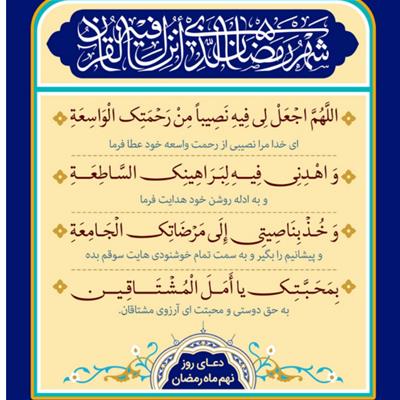 شهر رمضان الذی أنزل فیه القرآن
اللَّهُمَّ اجْعَلْ لِی فِیهِ نَصِیباً مِنْ رَحْمَتِکَ الْوَاسِعَةِ
ای خدا مرا نصیبی از رحمت واسعه خود عطا فرما
وَ اهْدِنِی فِیهِ لِبَرَاهِینِکَ السَّاطِعَةِ
و به ادله روشن خود هدایت فرما
وَ خُذْ بِنَاصِیَتِی إِلَی مَرْضَاتِکَ الْجَامِعَةِ
و پیشانیم را بگیر و به سمت تمام خوشنودی هایت سوقم بده
بِمَحَبَّتِکَ یا أَمَلَ الْمُشْتَاقِینَ
به حق دوستی و محبتت ای آرزوی مشتاقان.
دعـای روز
نهم ماه رمضان